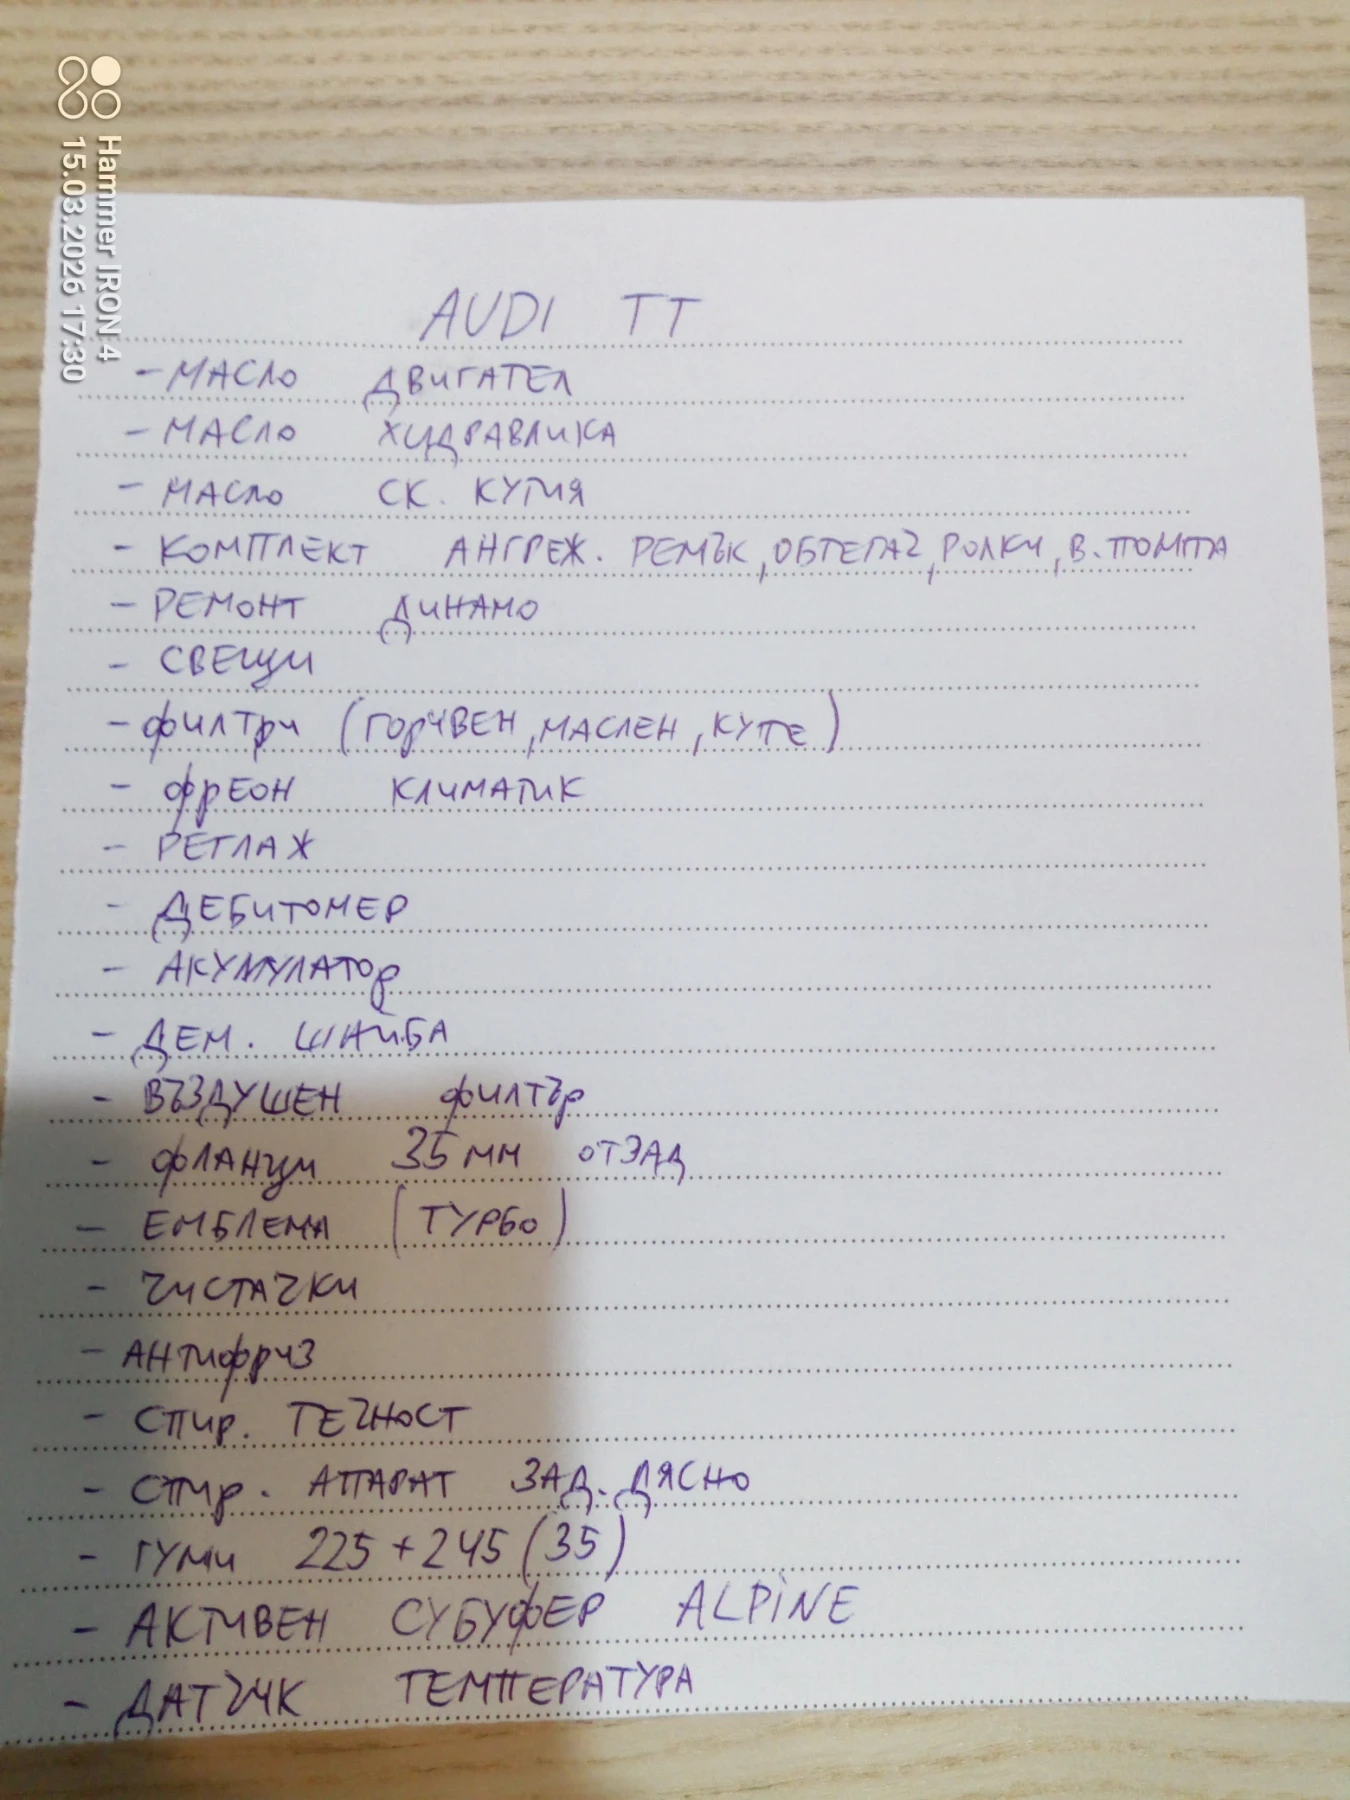 Hammer IRON 4
15.03.2026 17:30
AUDI TT
- МАСЛО ДВИГАТЕЛ
- МАСЛО ХИДРАВЛИКА
- МАСЛО СК. КУТИЯ
- КОМПЛЕКТ АНГРЕЖ. РЕМЪК, ОБТЕГАЧ, РОЛКИ, В. ПОМПА
- РЕМОНТ ДИНАМО
- СВЕЩИ
- ФИЛТРИ (ГОРИВЕН, МАСЛЕН, КУПЕ)
- ФРЕОН КЛИМАТИК
- РЕГЛАЖ
- ДЕБИТОМЕР
- АКУМУЛАТОР
- ДЕМ. ШАЙБА
- ВЪЗДУШЕН ФИЛТЪР
- ФЛАНЦИ 35 ММ ОТЗАД
- ЕМБЛЕМА (ТУРБО)
- ЧИСТАЧКИ
- АНТИФРИЗ
- СПИР. ТЕЧНОСТ
- СПИР. АПАРАТ ЗАД. ДЯСНО
- ГУМИ 225 + 245 (35)
- АКТИВЕН СУБУФЕР ALPINE
- ДАТЧИК ТЕМПЕРАТУРА